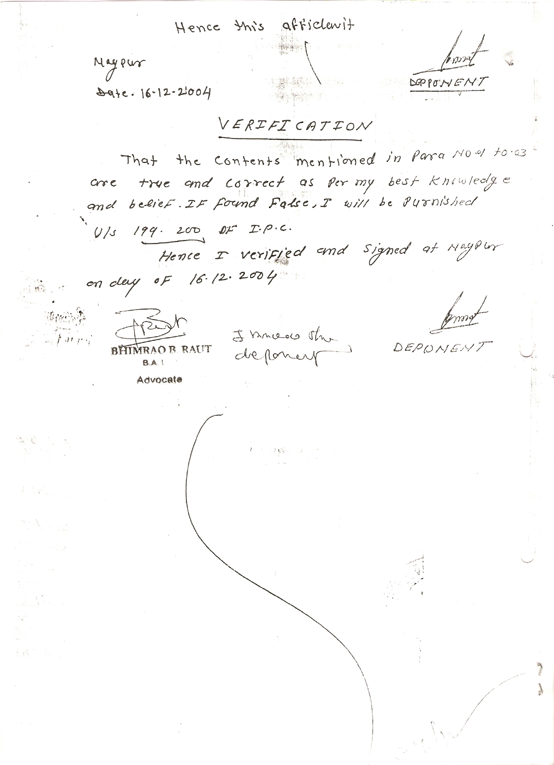 Hence this affidavit
Nagpur
Date. 16-12-2004
DEPPONENT
VERIFICATION
That the contents mentioned in Para No 01 to 03
are true and correct as Per my best Knowledge
and belief. IF found False, I will be Purnished
U/s 199. 200 OF I.P.C.
Hence I verified and Signed at Nagpur
on day oF 16.12.2004
BHIMRAO B RAUT
B.A.
Advocate
I know the
deponent
DEPONENT